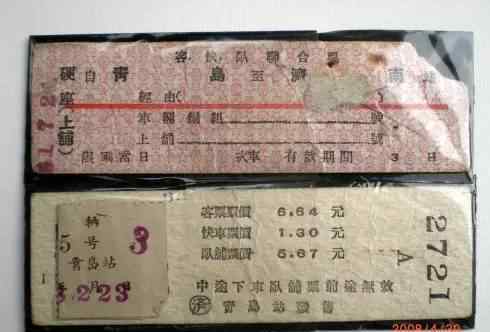 客.快.臥聯合票
硬座(上鋪) 自青島至濟南
經由(
車廂鋪組 號
上鋪 號
限乘當日 次車 有效期間 3日
1 7 2
輛
5号 3
青島站
年月日
3.223
客票票價 6.64 元
快車票價 1.30 元
臥鋪票價 5.67 元
中途下車臥鋪票前途無效
濟 青島站發售
2721
A
2008/4/29